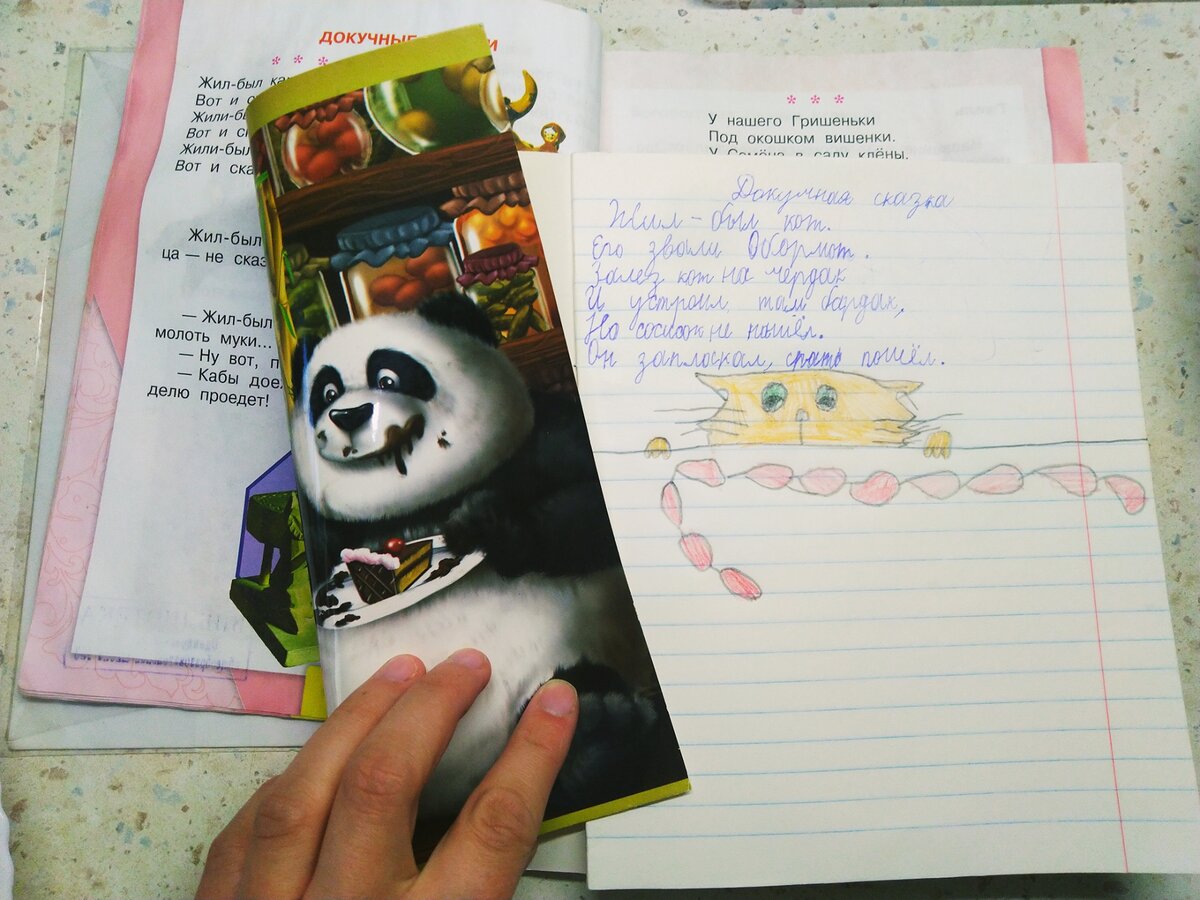 ДОКУЧНЫЕ
* * *
Жил-был
Вот и
Жили-бы
Вот и
Жили-был
Вот и ска
Жил-был
ца — не сказ
— Жил-был
молоть муки...
— Ну вот, п
— Кабы доех
делю проедет!
* * *
У нашего Гришеньки
Под окошком вишенки.
У Семёна в саду клёны.
Докучная сказка
Жил-был кот.
Его звали Обормот.
Залез кот на чердак
И устроил там бардак,
Но сосисок не нашёл.
Он заплакал, спать пошёл.